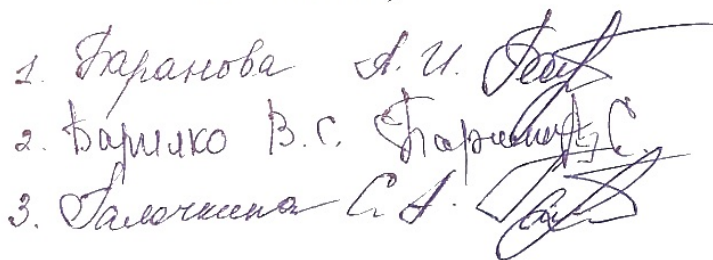 1. Баранова А. И.
2. Барилко В. С.
3. Галочкина С. А.